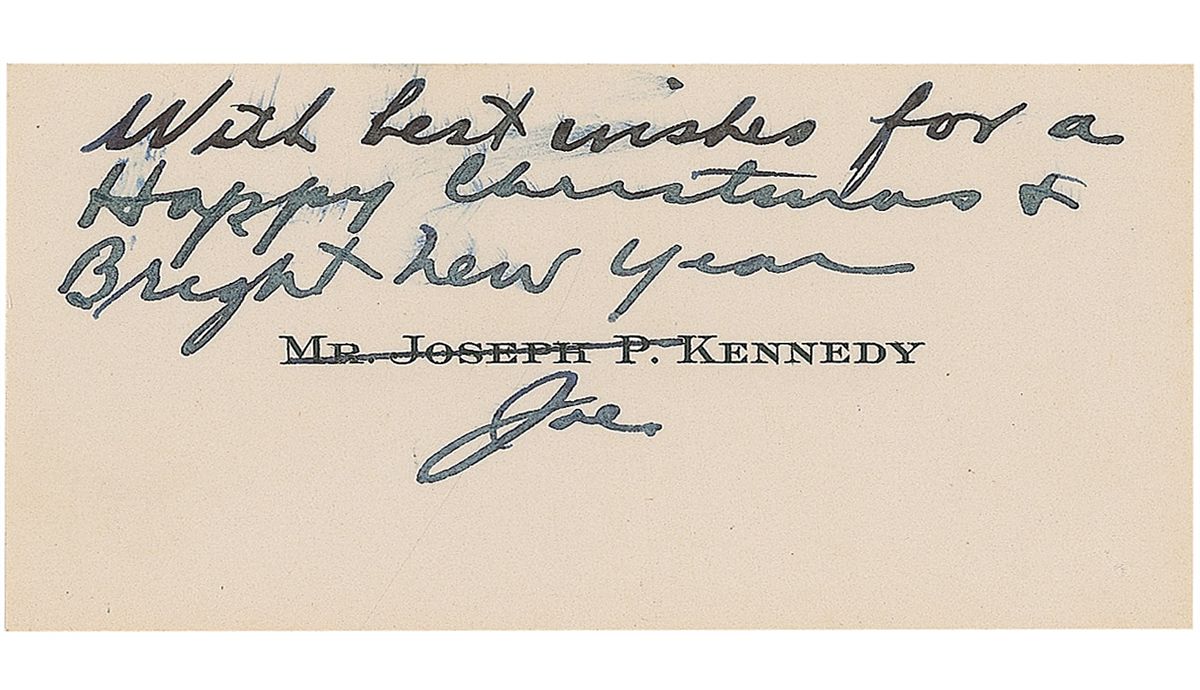 With best wishes for a
Happy Christmas &
Bright new year
MR. JOSEPH P. KENNEDY
Joe.